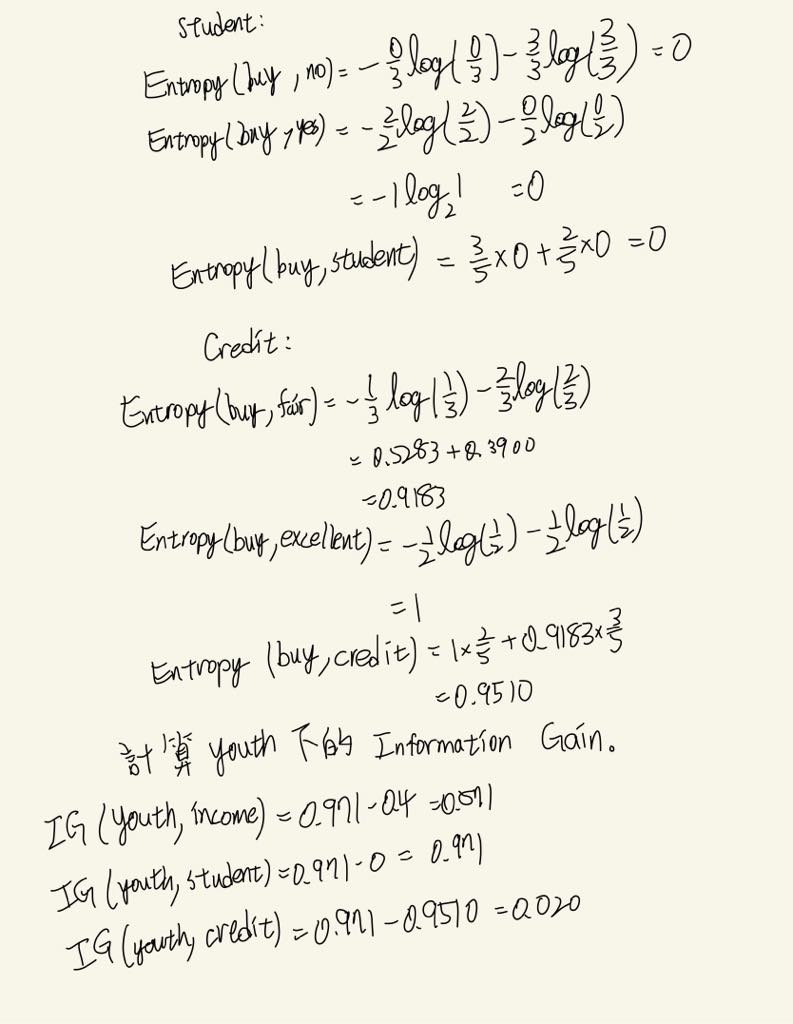 Student:
Entropy(buy, no) = -0/3 log(0/3) - 3/3 log(3/3) = 0
Entropy(buy, yes) = -2/2 log(2/2) - 0/2 log(0/2)
= -1 log₂1 = 0
Entropy(buy, student) = 3/5 × 0 + 2/5 × 0 = 0
Credit:
Entropy(buy, fair) = -1/3 log(1/3) - 2/3 log(2/3)
= 0.5283 + 0.3900
= 0.9183
Entropy(buy, excellent) = -1/2 log(1/2) - 1/2 log(1/2)
= 1
Entropy (buy, credit) = 1 × 2/5 + 0.9183 × 3/5
= 0.9510
計算 youth 下的 Information Gain.
IG (youth, income) = 0.971 - 0.4 = 0.571
IG (youth, student) = 0.971 - 0 = 0.971
IG (youth, credit) = 0.971 - 0.9510 = 0.020